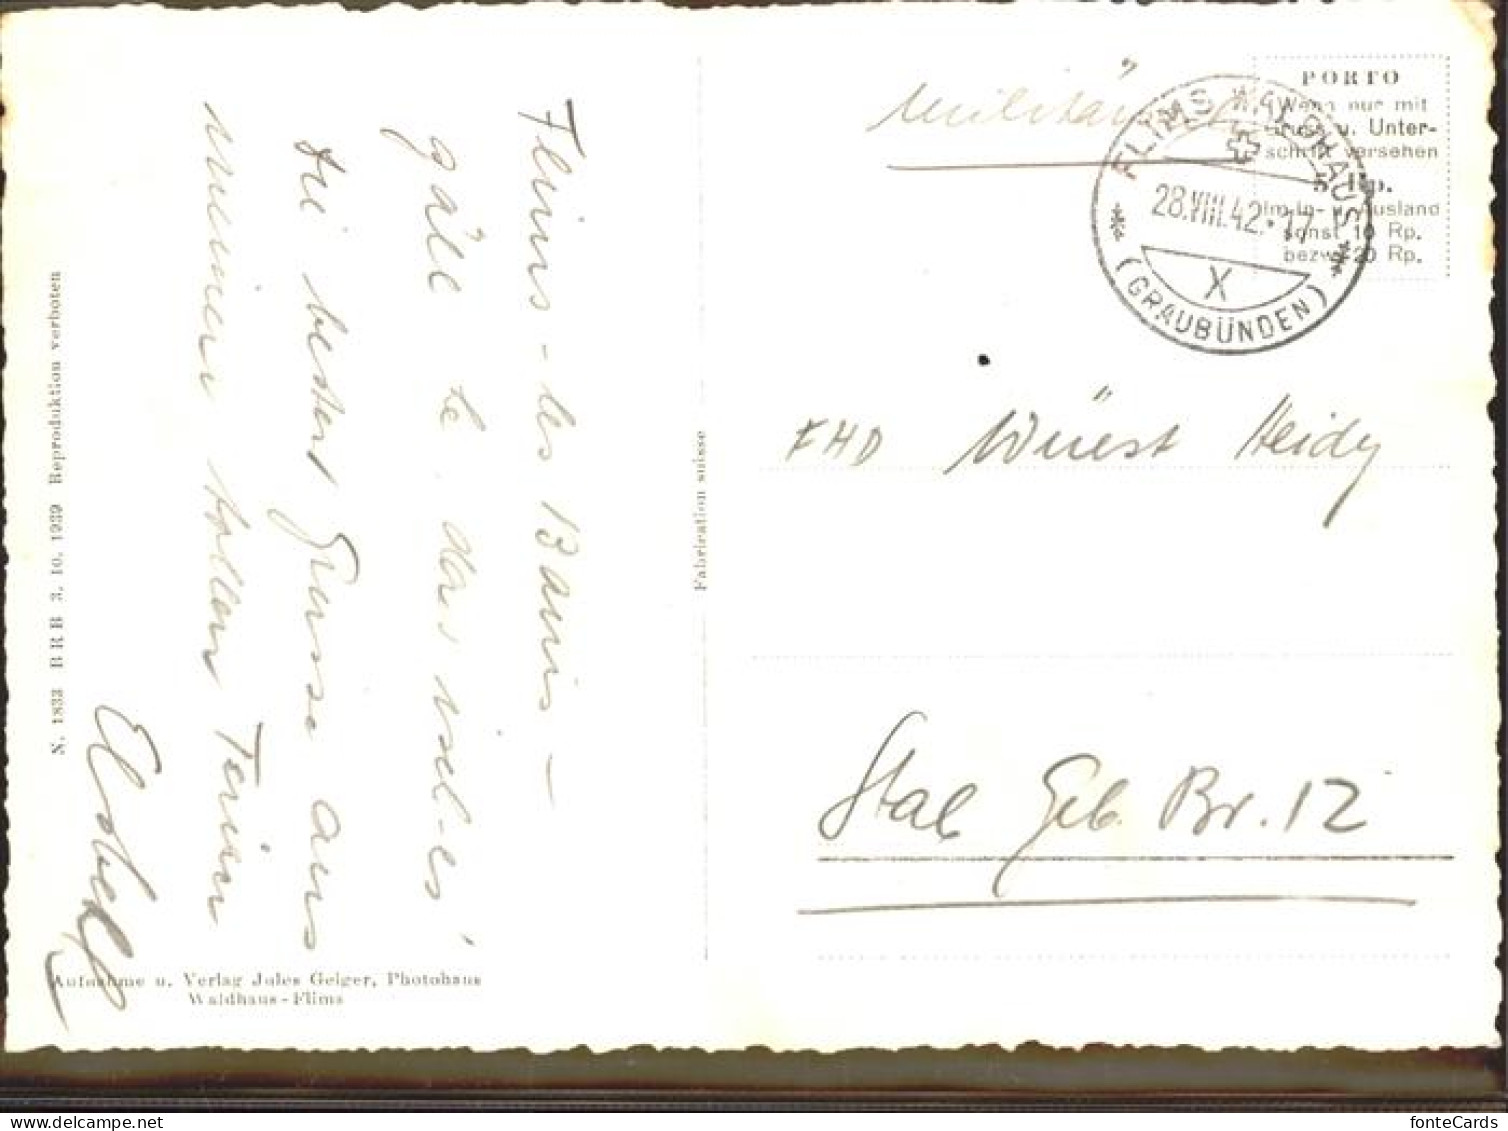 Flims - les Bains -
gäll Du das isch es'
Die besten Grüsse aus
meinen tollen Ferien
Elsbeth
N. 1833 BRB 3. 10. 1939 Reproduktion verboten
Aufnahme u. Verlag Jules Geiger, Photohaus
Waldhaus-Flims
Fabrication suisse
Militär
PORTO
Wenn nur mit
Gruss u. Unter-
schrift versehen
5 Rp.
im In- u. Ausland
sonst 10 Rp.
bezw. 20 Rp.
FLIMS WALDHAUS
28.VIII.42.-17
X
(GRAUBÜNDEN)
FHD Wüest Heidy
Stab Geb. Br. 12
fonteCards